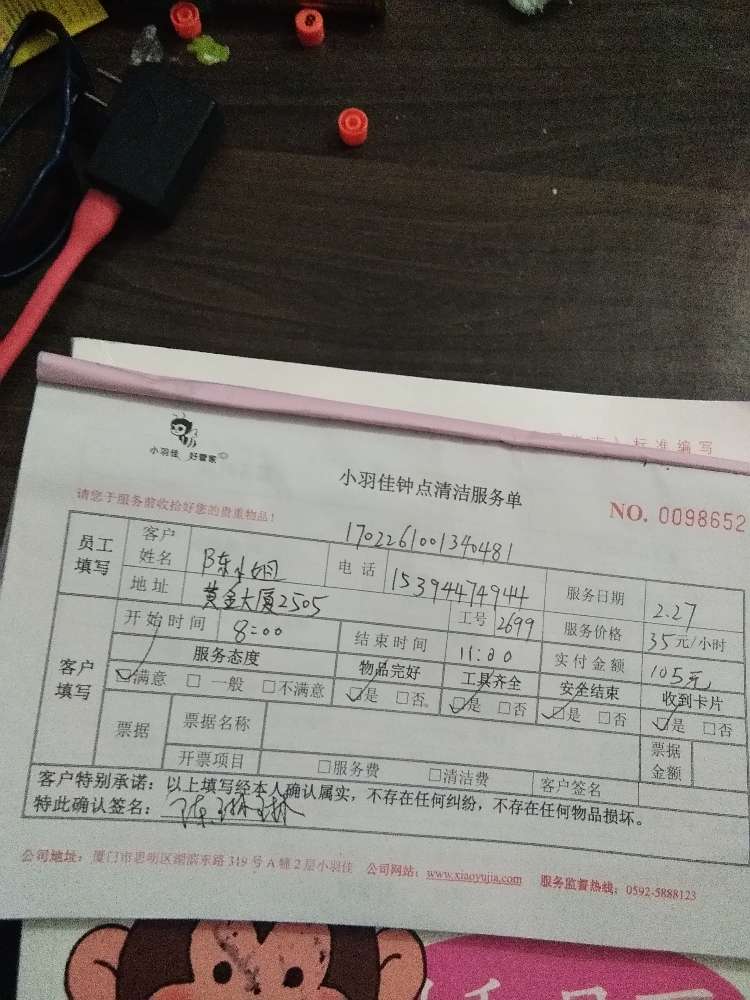 标准编写
小羽佳 好管家
小羽佳钟点清洁服务单
请您于服务前收拾好您的贵重物品!
NO. 0098652
1702261001340481
员工填写 客户姓名 B陈小姐 电话 15394474944 服务日期 2.27
地址 黄金大厦2505 工号 2699 服务价格 35元/小时
客户填写 开始时间 8:00 结束时间 11:00 实付金额 105元
服务态度 物品完好 工具齐全 安全结束 收到卡片
☑满意 □一般 □不满意 ☑是 □否 ☑是 □否 ☑是 □否 ☑是 □否
票据 票据名称 票据金额
开票项目 □服务费 □清洁费 客户签名
客户特别承诺:以上填写经本人确认属实,不存在任何纠纷,不存在任何物品损坏。
特此确认签名:陈琳琳
公司地址:厦门市思明区湖滨东路319号A幢2层小羽佳 公司网站:www.xiaoyujia.com 服务监督热线:0592-5888123